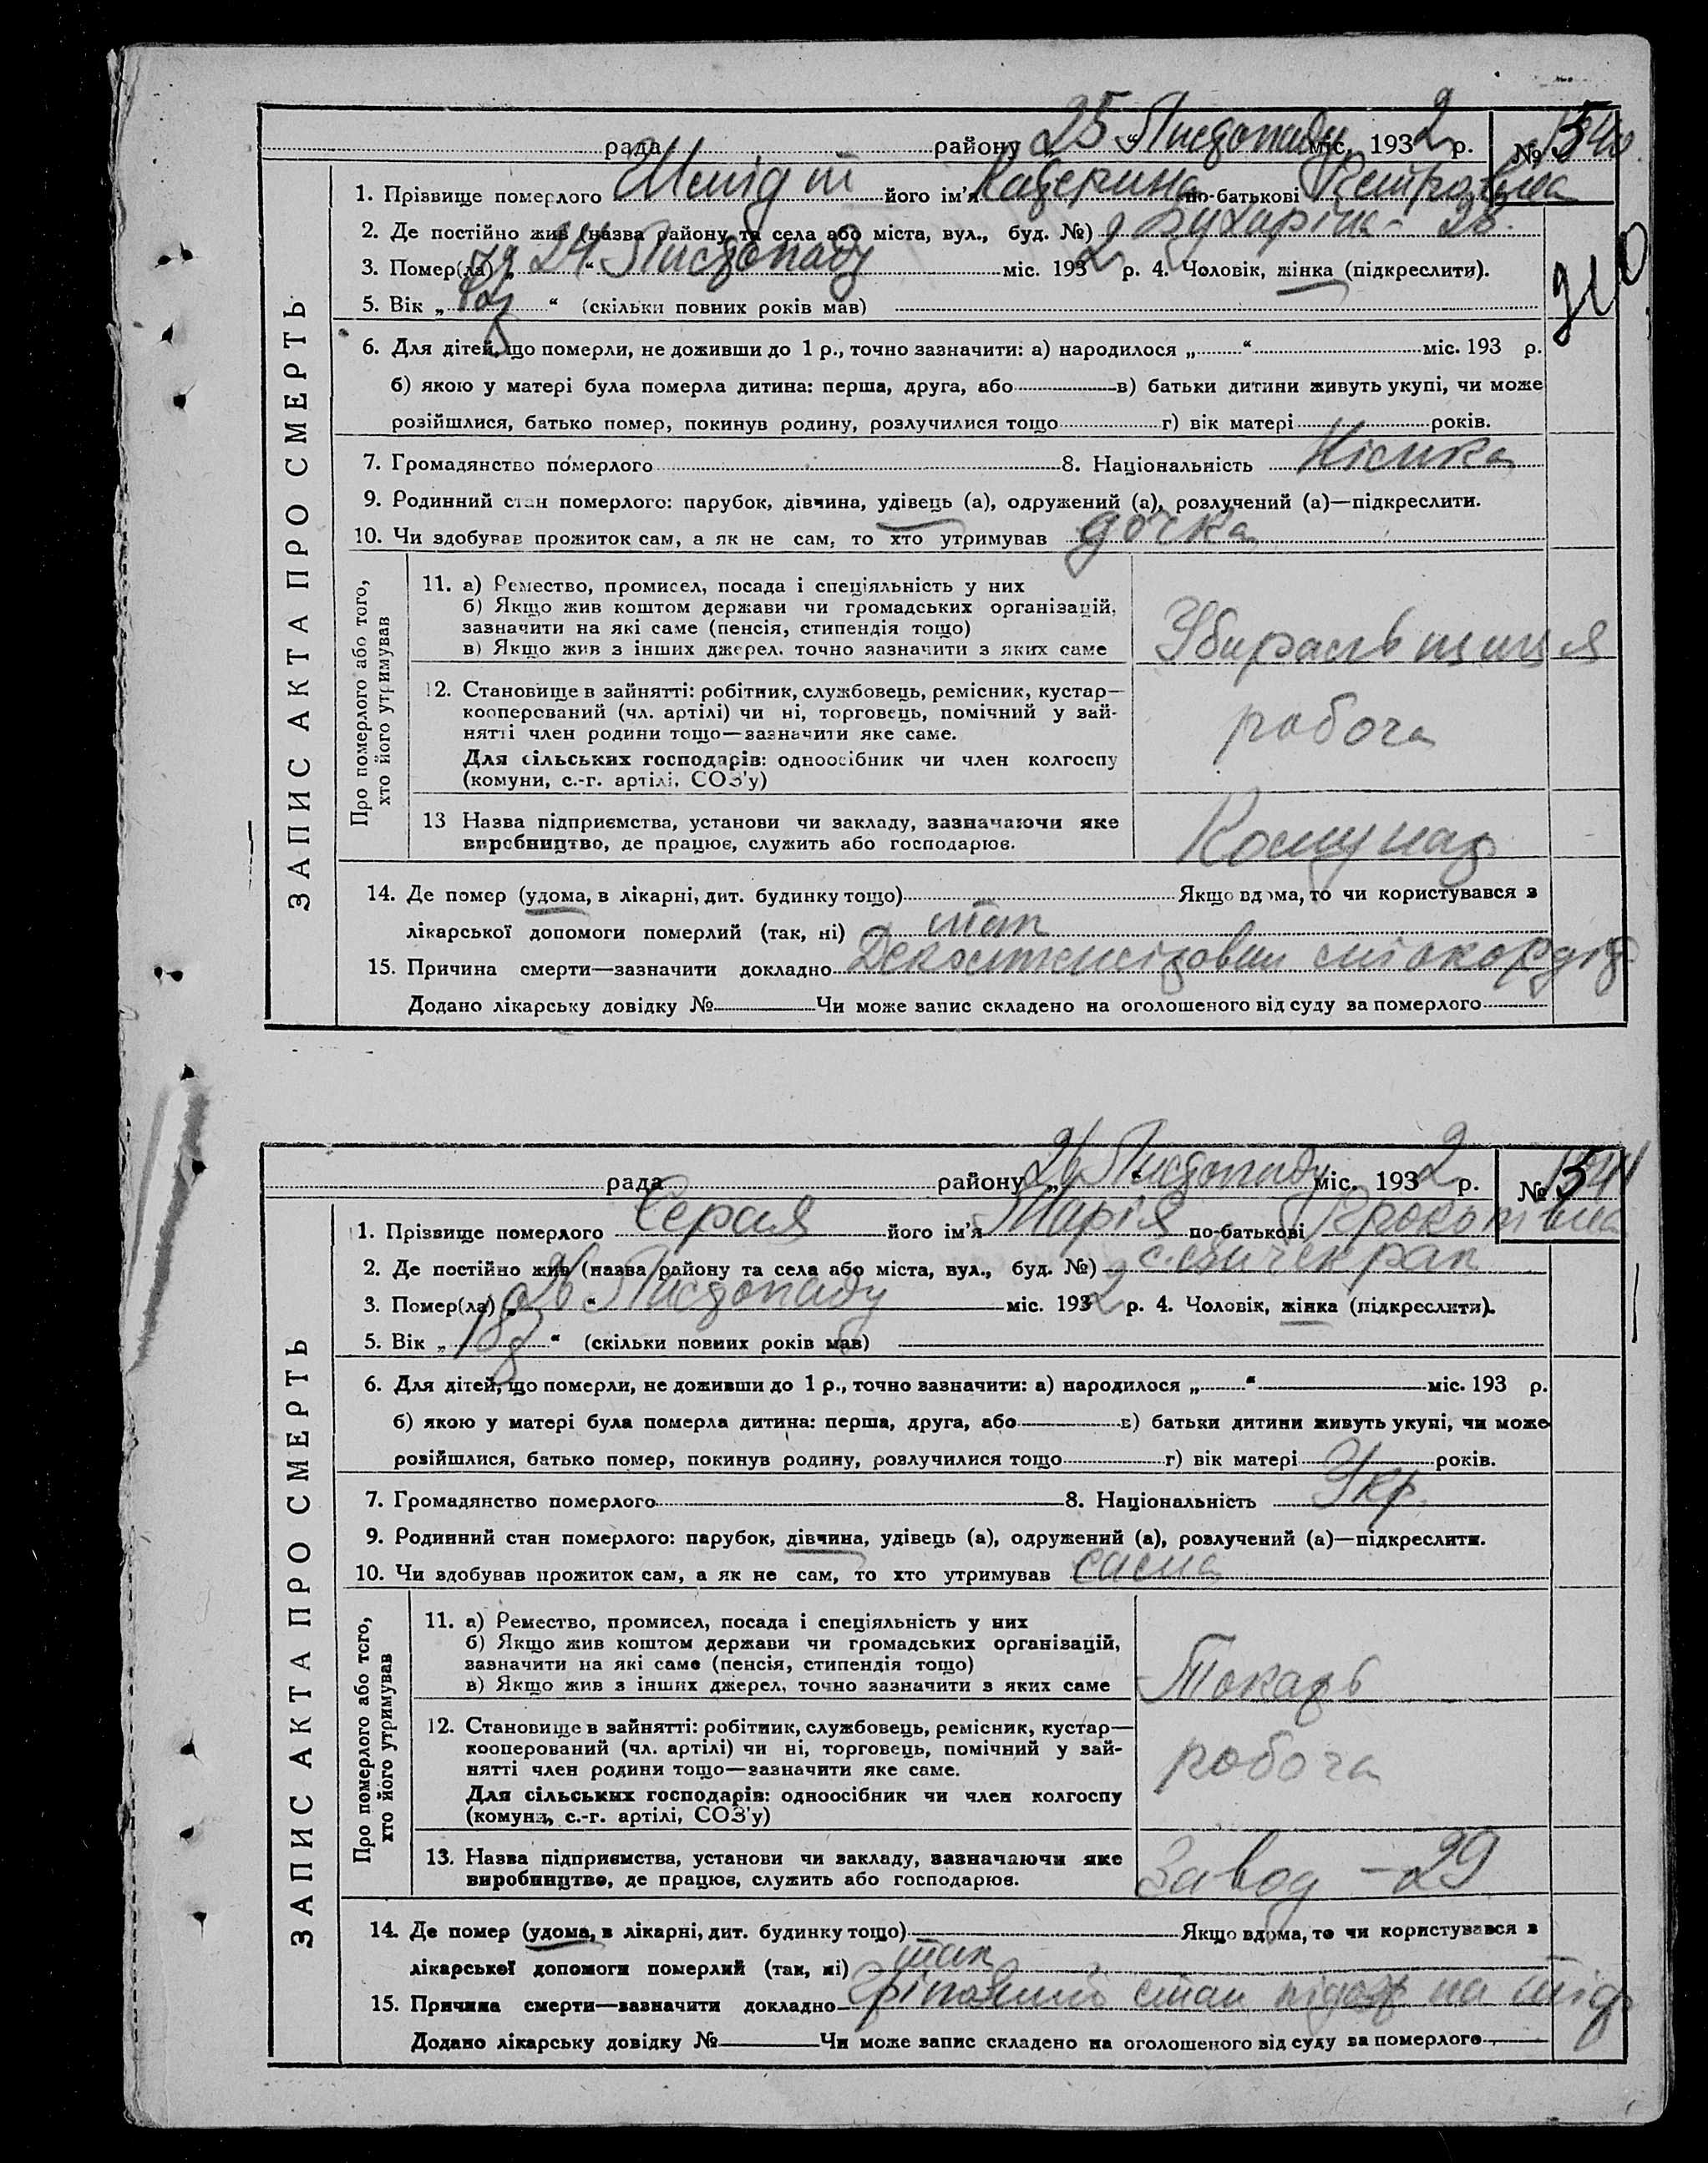 рада районе 25 „ Листопаду міс. 1932 р. № 1540
1. Прізвище померлого Шмідт його ім'я Катерина по-батькові Петровна
2. Де постійно жив (назва району та села або міста, вул., буд. №) Бухаріна - 28.
3. Помер(ла) „ 24 “ Листопаду міс. 1932 р. 4. Чоловік, жінка (підкреслити).
5. Вік „ “ (скільки повних років мав)
6. Для дітей, що померли, не доживши до 1 р., точно зазначити: а) народилося „ “ міс. 193 р.
б) якою у матері була померла дитина: перша, друга, або в) батьки дитини живуть укупі, чи може
розійшлися, батько помер, покинув родину, розлучилися тощо г) вік матері років.
7. Громадянство померлого 8. Національність Німка
9. Родинний стан померлого: парубок, дівчина, удівець (а), одружений (а), розлучений (а)—підкреслити.
10. Чи здобував прожиток сам, а як не сам, то хто утримував дочка
ЗАПИС АКТА ПРО СМЕРТЬ
Про померлого або того, хто його утримував
11. а) Ремество, промисел, посада і спеціяльність у них
б) Якщо жив коштом держави чи громадських організацій,
зазначити на які саме (пенсія, стипендія тощо)
в) Якщо жив з інших джерел, точно зазначити з яких саме
Убиральщиця
12. Становище в зайнятті: робітник, службовець, ремісник, кустар—
кооперований (чл. артілі) чи ні, торговець, помічний у зай-
нятті член родини тощо—зазначити яке саме.
Для сільських господарів: одноосібник чи член колгоспу
(комуни, с.-г. артілі, СОЗ'у)
робоча
13 Назва підприємства, установи чи закладу, зазначаючи яке
виробництво, де працює, служить або господарює.
Комунар
14. Де помер (удома, в лікарні, дит. будинку тощо) Якщо вдома, то чи користувався з
лікарської допомоги померлий (так, ні) так
15. Причина смерти—зазначити докладно міокардіт
Додано лікарську довідку № Чи може запис складено на оголошеного від суду за померлого
рада району „ 26 “ Листопаду міс. 1932 р. № 1541
1. Прізвище померлого Серая його ім'я Марія по-батькові Прокопівна
2. Де постійно жив (назва району та села або міста, вул., буд. №)
3. Помер(ла) „ 26 “ Листопаду міс. 1932 р. 4. Чоловік, жінка (підкреслити).
5. Вік „ 18 “ (скільки повних років мав)
6. Для дітей, що померли, не доживши до 1 р., точно зазначити: а) народилося „ “ міс. 193 р.
б) якою у матері була померла дитина: перша, друга, або в) батьки дитини живуть укупі, чи може
розійшлися, батько помер, покинув родину, розлучилися тощо г) вік матері років.
7. Громадянство померлого 8. Національність Укр.
9. Родинний стан померлого: парубок, дівчина, удівець (а), одружений (а), розлучений (а)—підкреслити.
10. Чи здобував прожиток сам, а як не сам, то хто утримував сама
ЗАПИС АКТА ПРО СМЕРТЬ
Про померлого або того, хто його утримував
11. а) Ремество, промисел, посада і спеціяльність у них
б) Якщо жив коштом держави чи громадських організацій,
зазначити на які саме (пенсія, стипендія тощо)
в) Якщо жив з інших джерел, точно зазначити з яких саме
Токарь
12. Становище в зайнятті: робітник, службовець, ремісник, кустар—
кооперований (чл. артілі) чи ні, торговець, помічний у зай-
нятті член родини тощо—зазначити яке саме.
Для сільських господарів: одноосібник чи член колгоспу
(комуни, с.-г. артілі, СОЗ'у)
робоча
13. Назва підприємства, установи чи закладу, зазначаючи яке
виробництво, де працює, служить або господарює.
Завод - 29
14. Де помер (удома, в лікарні, дит. будинку тощо) Якщо вдома, то чи користувався з
лікарської допомоги померлий (так, ні) так
15. Причина смерти—зазначити докладно стан на тіф
Додано лікарську довідку № Чи може запис складено на оголошеного від суду за померлого